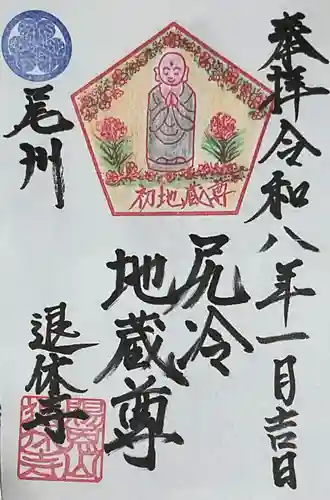 奉拝令和八年一月吉日
尻冷
地蔵尊
初地蔵尊
尾州
退休寺